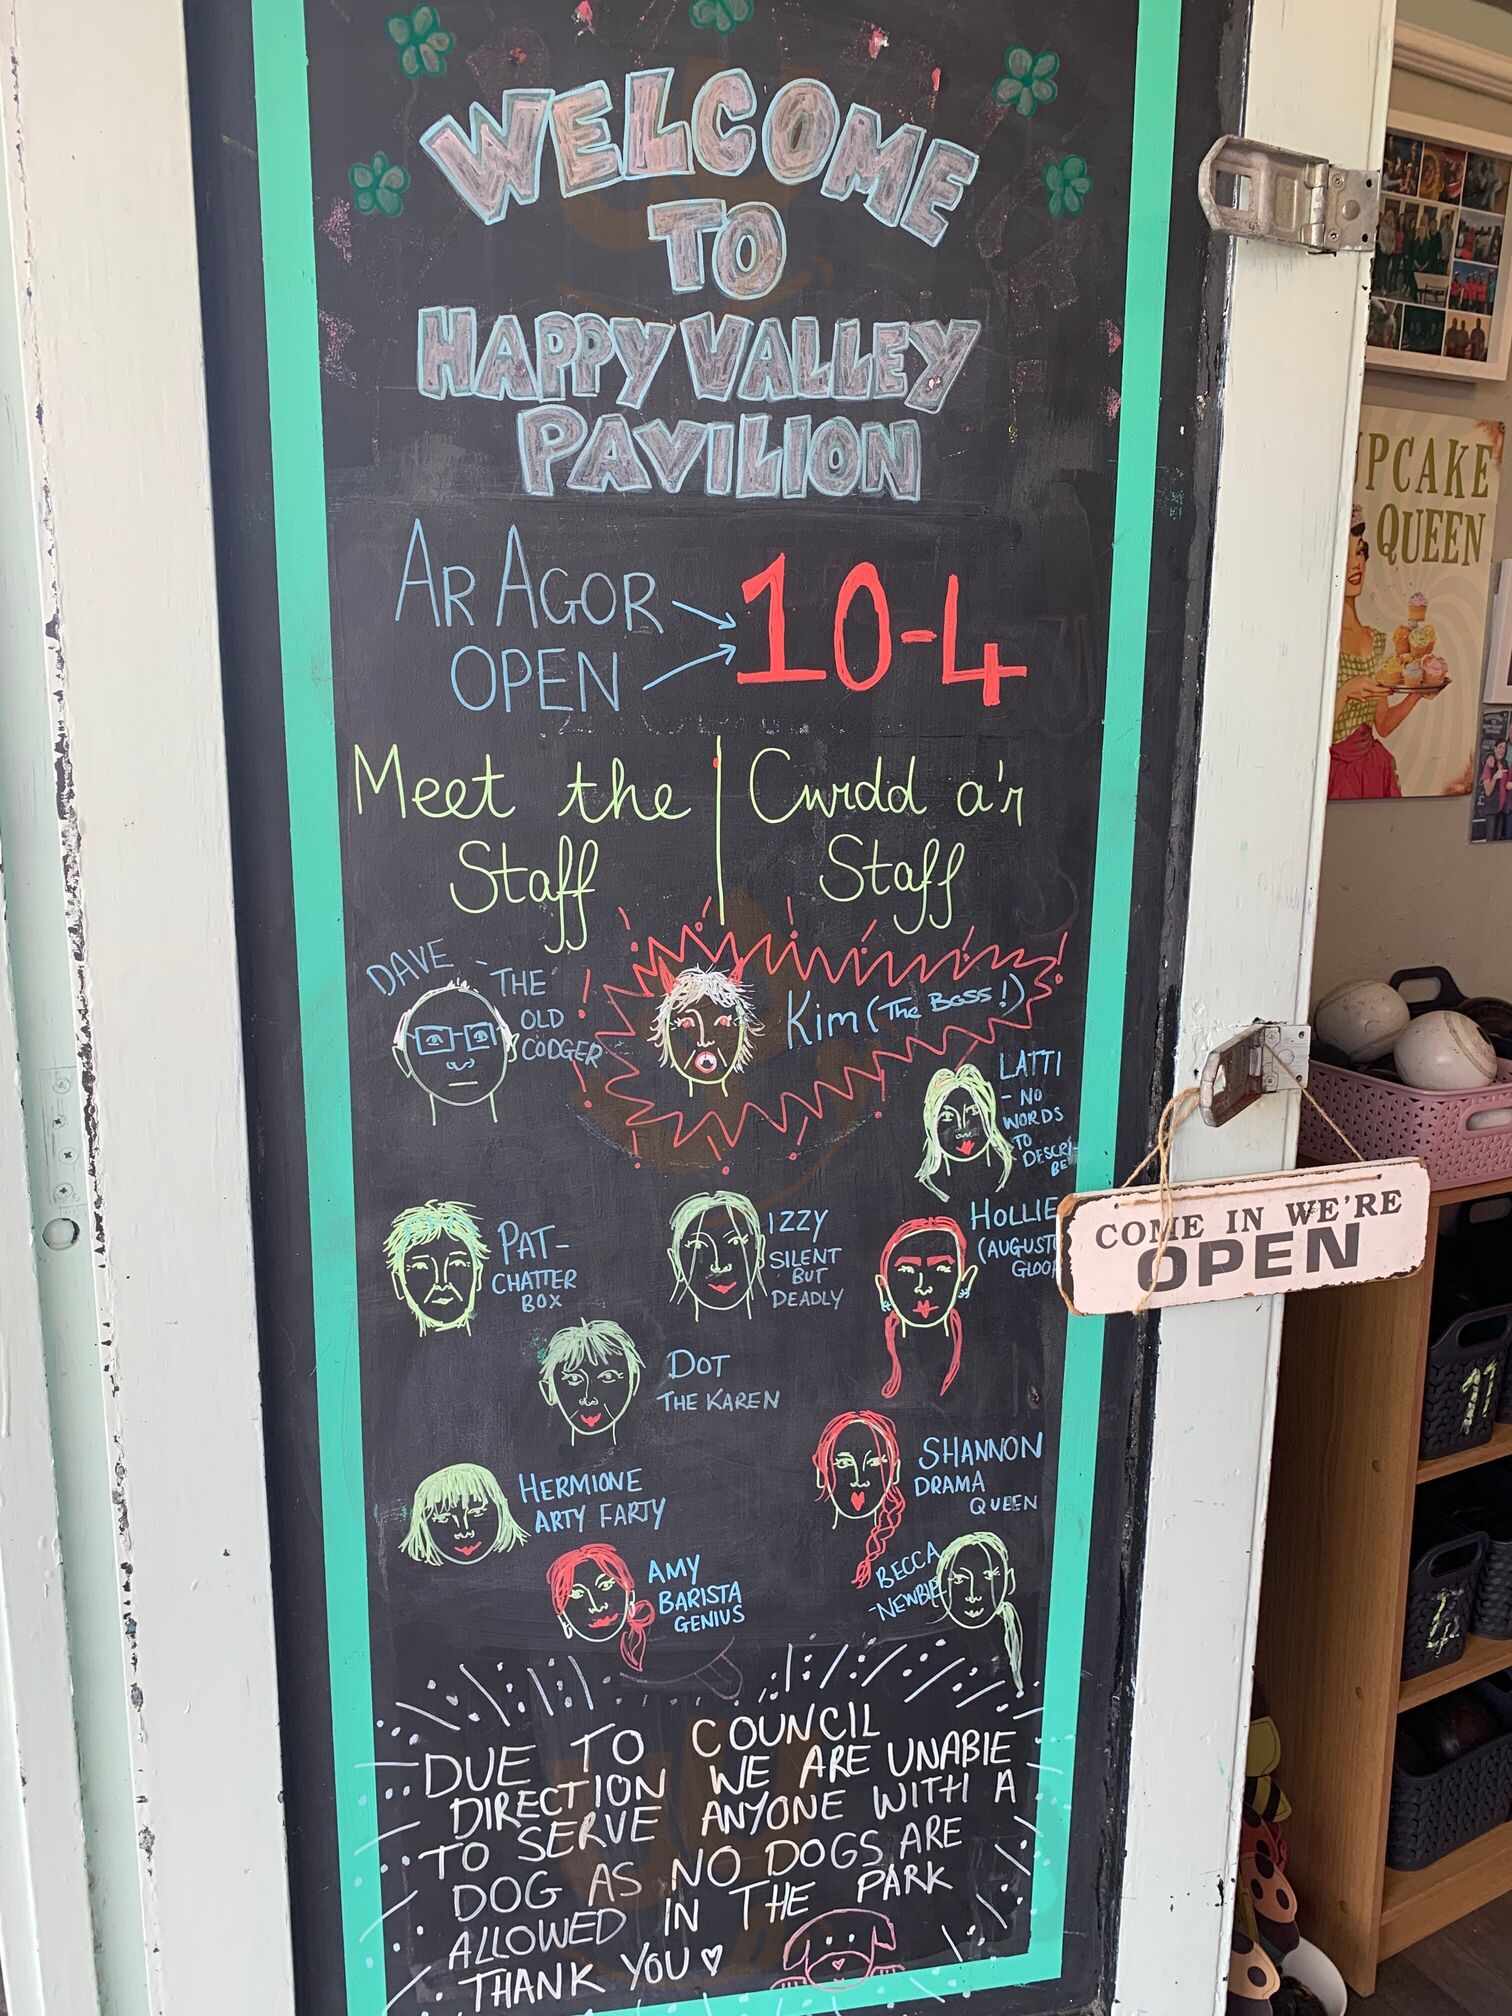 WELCOME
TO
HAPPY VALLEY
PAVILION
AR AGOR
OPEN
10-4
Meet the
Staff
Cwrdd a'r
Staff
DAVE -
THE
OLD
CODGER
Kim (The Boss!)
LATTI
- NO
WORDS
TO
DESCRI-
BE
PAT-
CHATTER
BOX
IZZY
SILENT
BUT
DEADLY
HOLLIE
DOT
THE KAREN
SHANNON
DRAMA
QUEEN
HERMIONE
ARTY FARTY
AMY
BARISTA
GENIUS
BECCA
-NEWBIE
DUE TO COUNCIL
DIRECTION WE ARE UNABLE
TO SERVE ANYONE WITH A
DOG AS NO DOGS ARE
ALLOWED IN THE PARK
THANK YOU ♡
COME IN WE'RE
OPEN
PCAKE
QUEEN
11